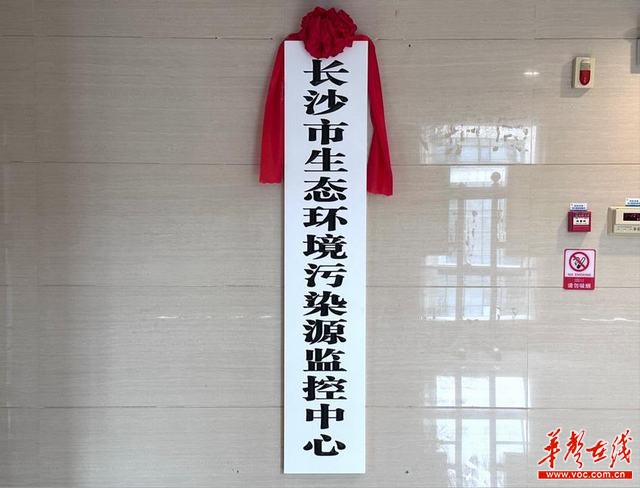 长沙市生态环境污染源监控中心
NO SMOKING
请勿吸烟
华声在线
www.voc.com.cn